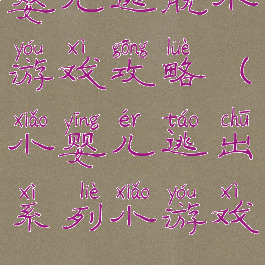 婴儿逃脱
yóu xì gōng luè
游戏攻略（
xiǎo yīng ér táo chū
小婴儿逃出
xì liè xiǎo yóu xì
系列小游戏